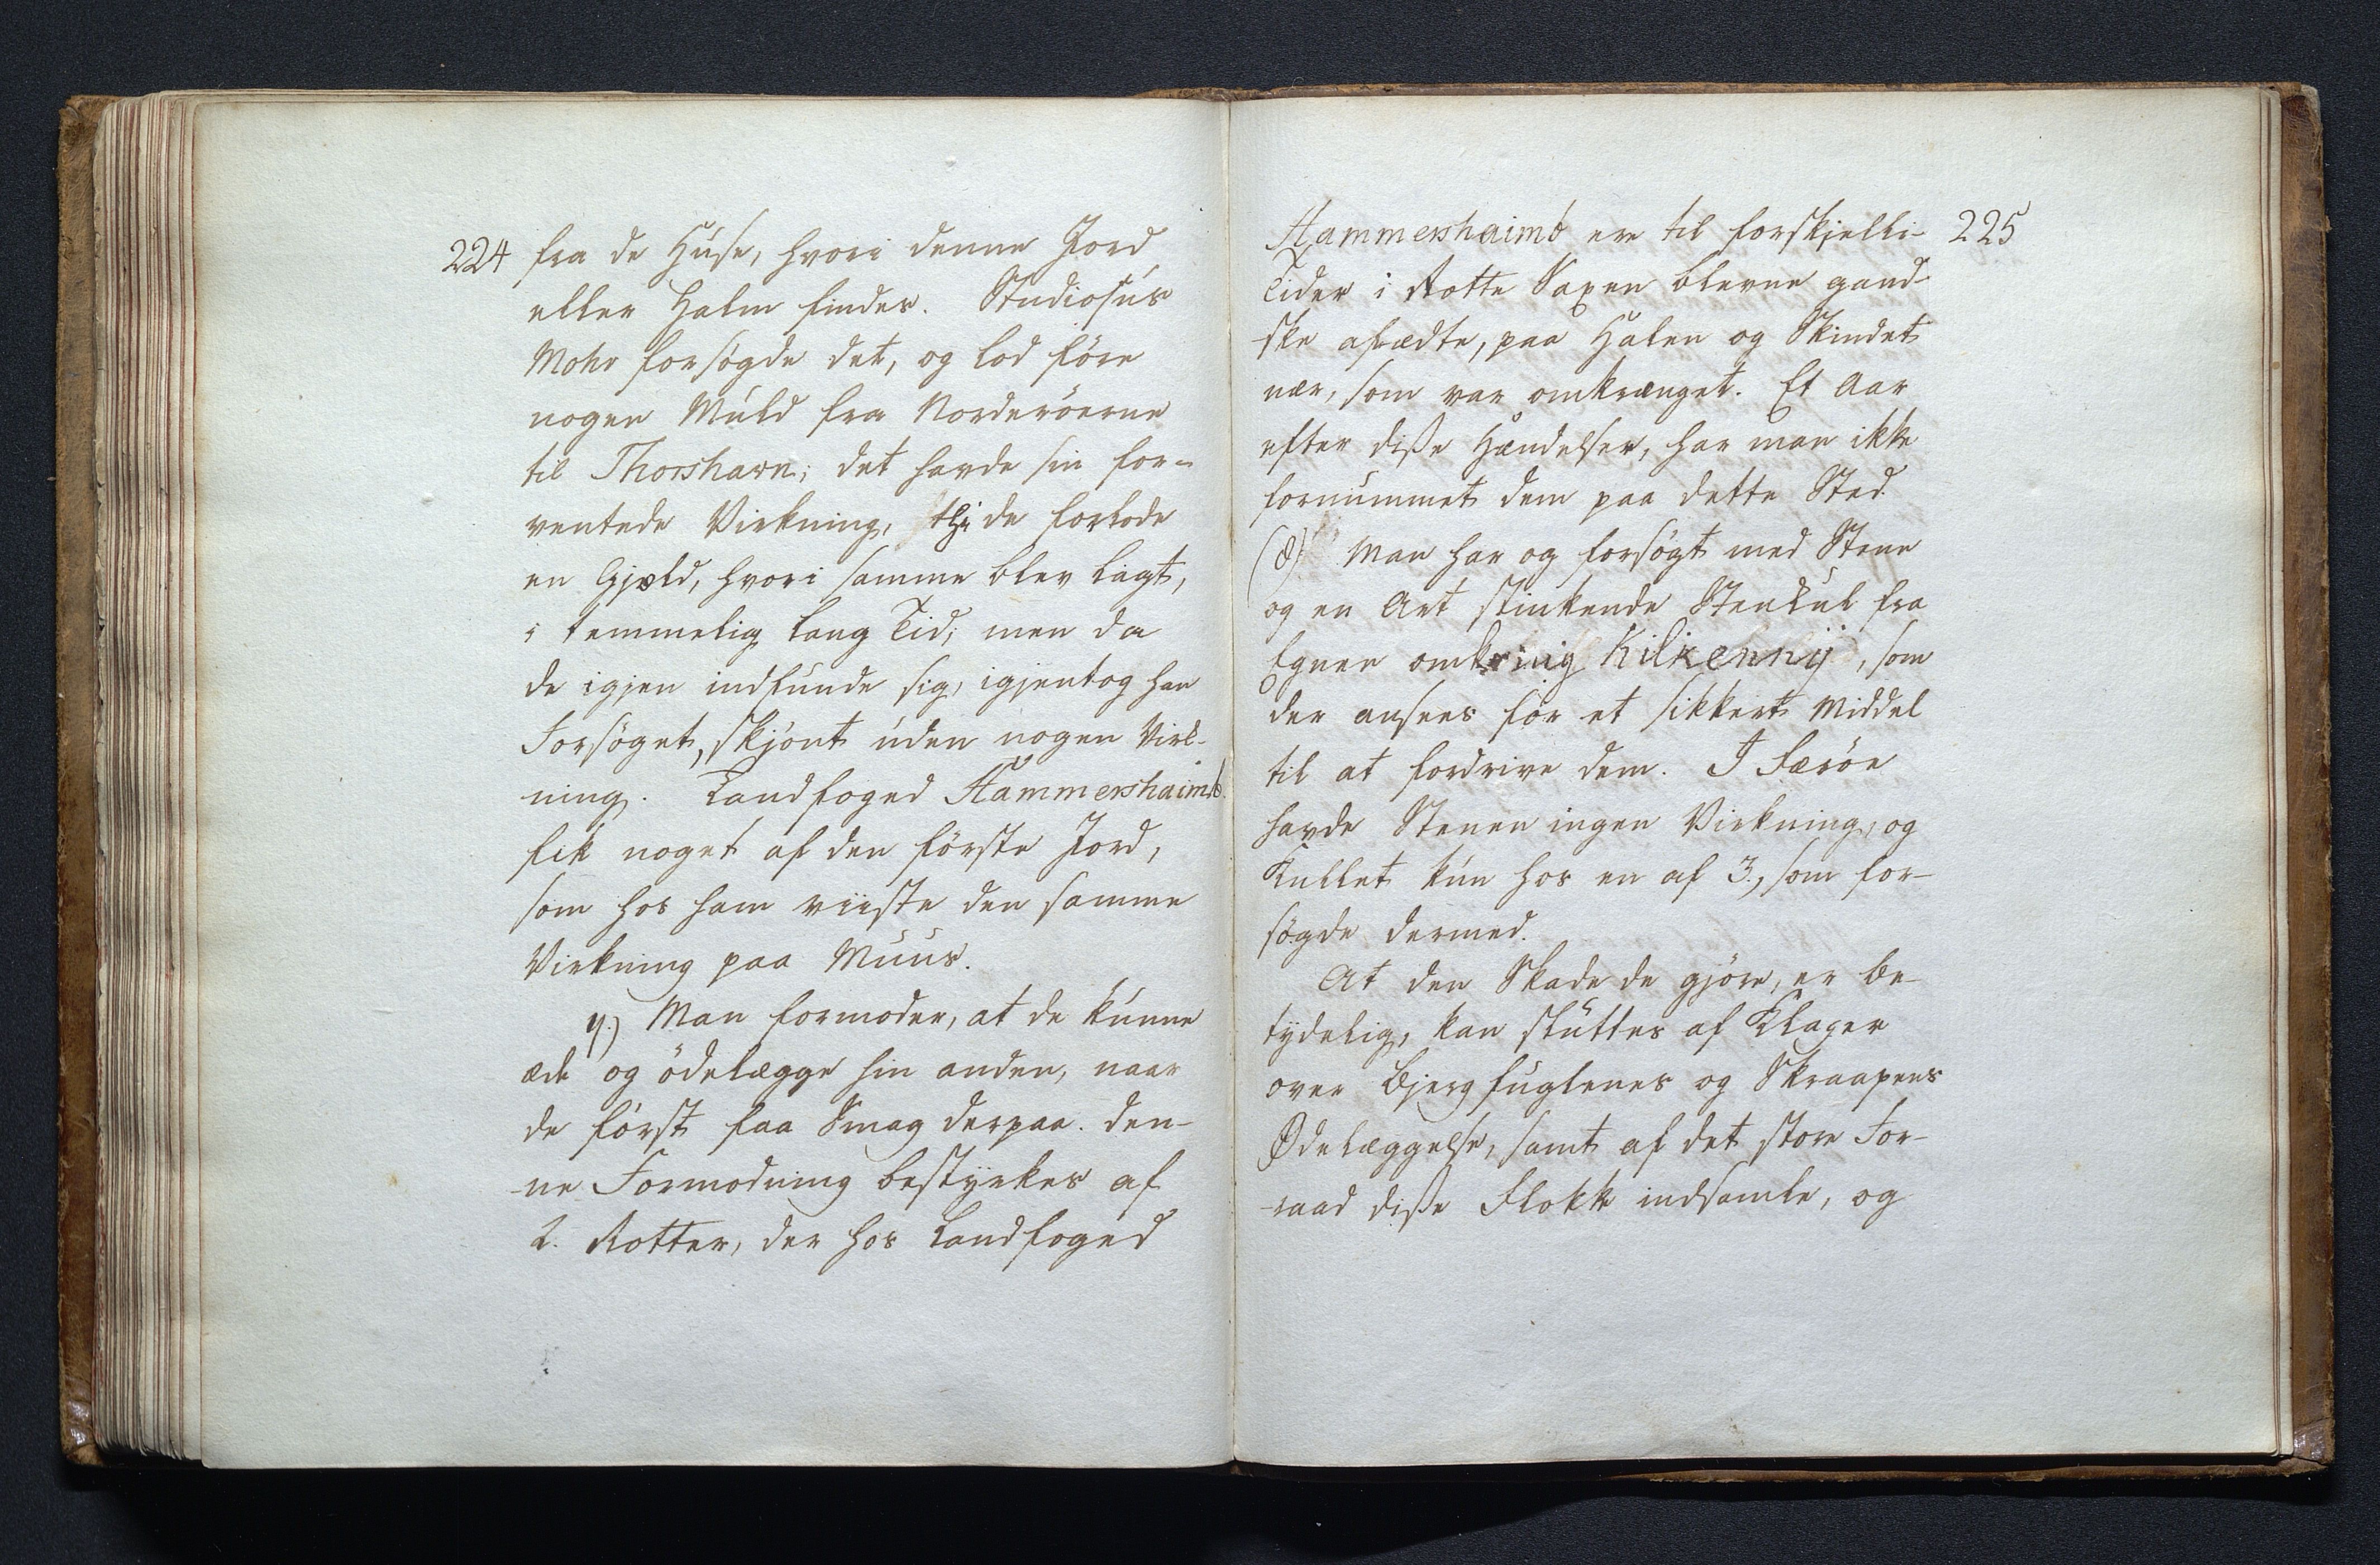 224 fra de Huse, hvori denne Jord
eller Halm findes. Studiosus
Mohr forsögde det, og lod före
nogen Muld fra Norderöerne
til Thorshavn; det havde sin for-
ventede Virkning, thi de forlode
en Gjæld, hvori samme blev lagt,
i temmelig lang Tid; men da
de igjen indfunde sig, igjentog han
Forsöget, skjönt uden nogen Virk-
ning. Landfoged Hammershaimb.
fik noget af den förste Jord,
som hos ham viiste den samme
Virkning paa Muus.
y.) Man formoder, at de kunne
æde og ödelægge hin anden, naar
de först faa Smag derpaa. Den-
ne Formodning bestyrkes af
2. Rotter, der hos Landfoged
Hammershaimb ere til forskjelli- 225
Tider i Rotte Saxen blevne gand-
ske afædte, paa Halen og Skindet
nær, som var omkrænget. Et Aar
efter diße Hændelser, har man ikke
fornummet dem paa dette Sted.
Man har og forsögt med Stene
og en Art stinkende Steenkul fra
Egnen omkring Kilkenny, som
der ansees for et sikkert Middel
til at fordrive dem. I Færöe
havde Stenen ingen Virkning, og
Kullet kun hos en af 3., som for-
sögde dermed.
At den Skade de gjöre, er be-
tydelig, kan sluttes af Klager
over Bjergfuglenes og Skraapens
Ødelæggelse, samt af det store For-
raad diße Flokke indsamle, og